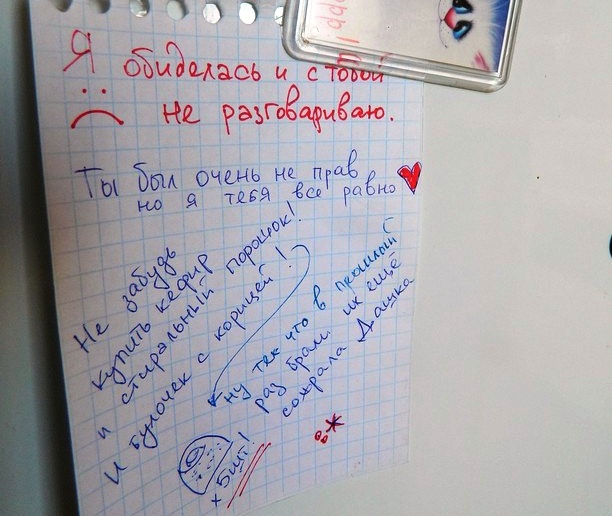 Я обиделась и с тобой
не разговариваю.
Ты был очень не прав
но я тебя все равно
Не забудь
купить кефир
и стиральный порошок!
И булочек с корицей!
ну тех что в прошлый
раз брали их ещё
сожрала Дашка
x 5шт!